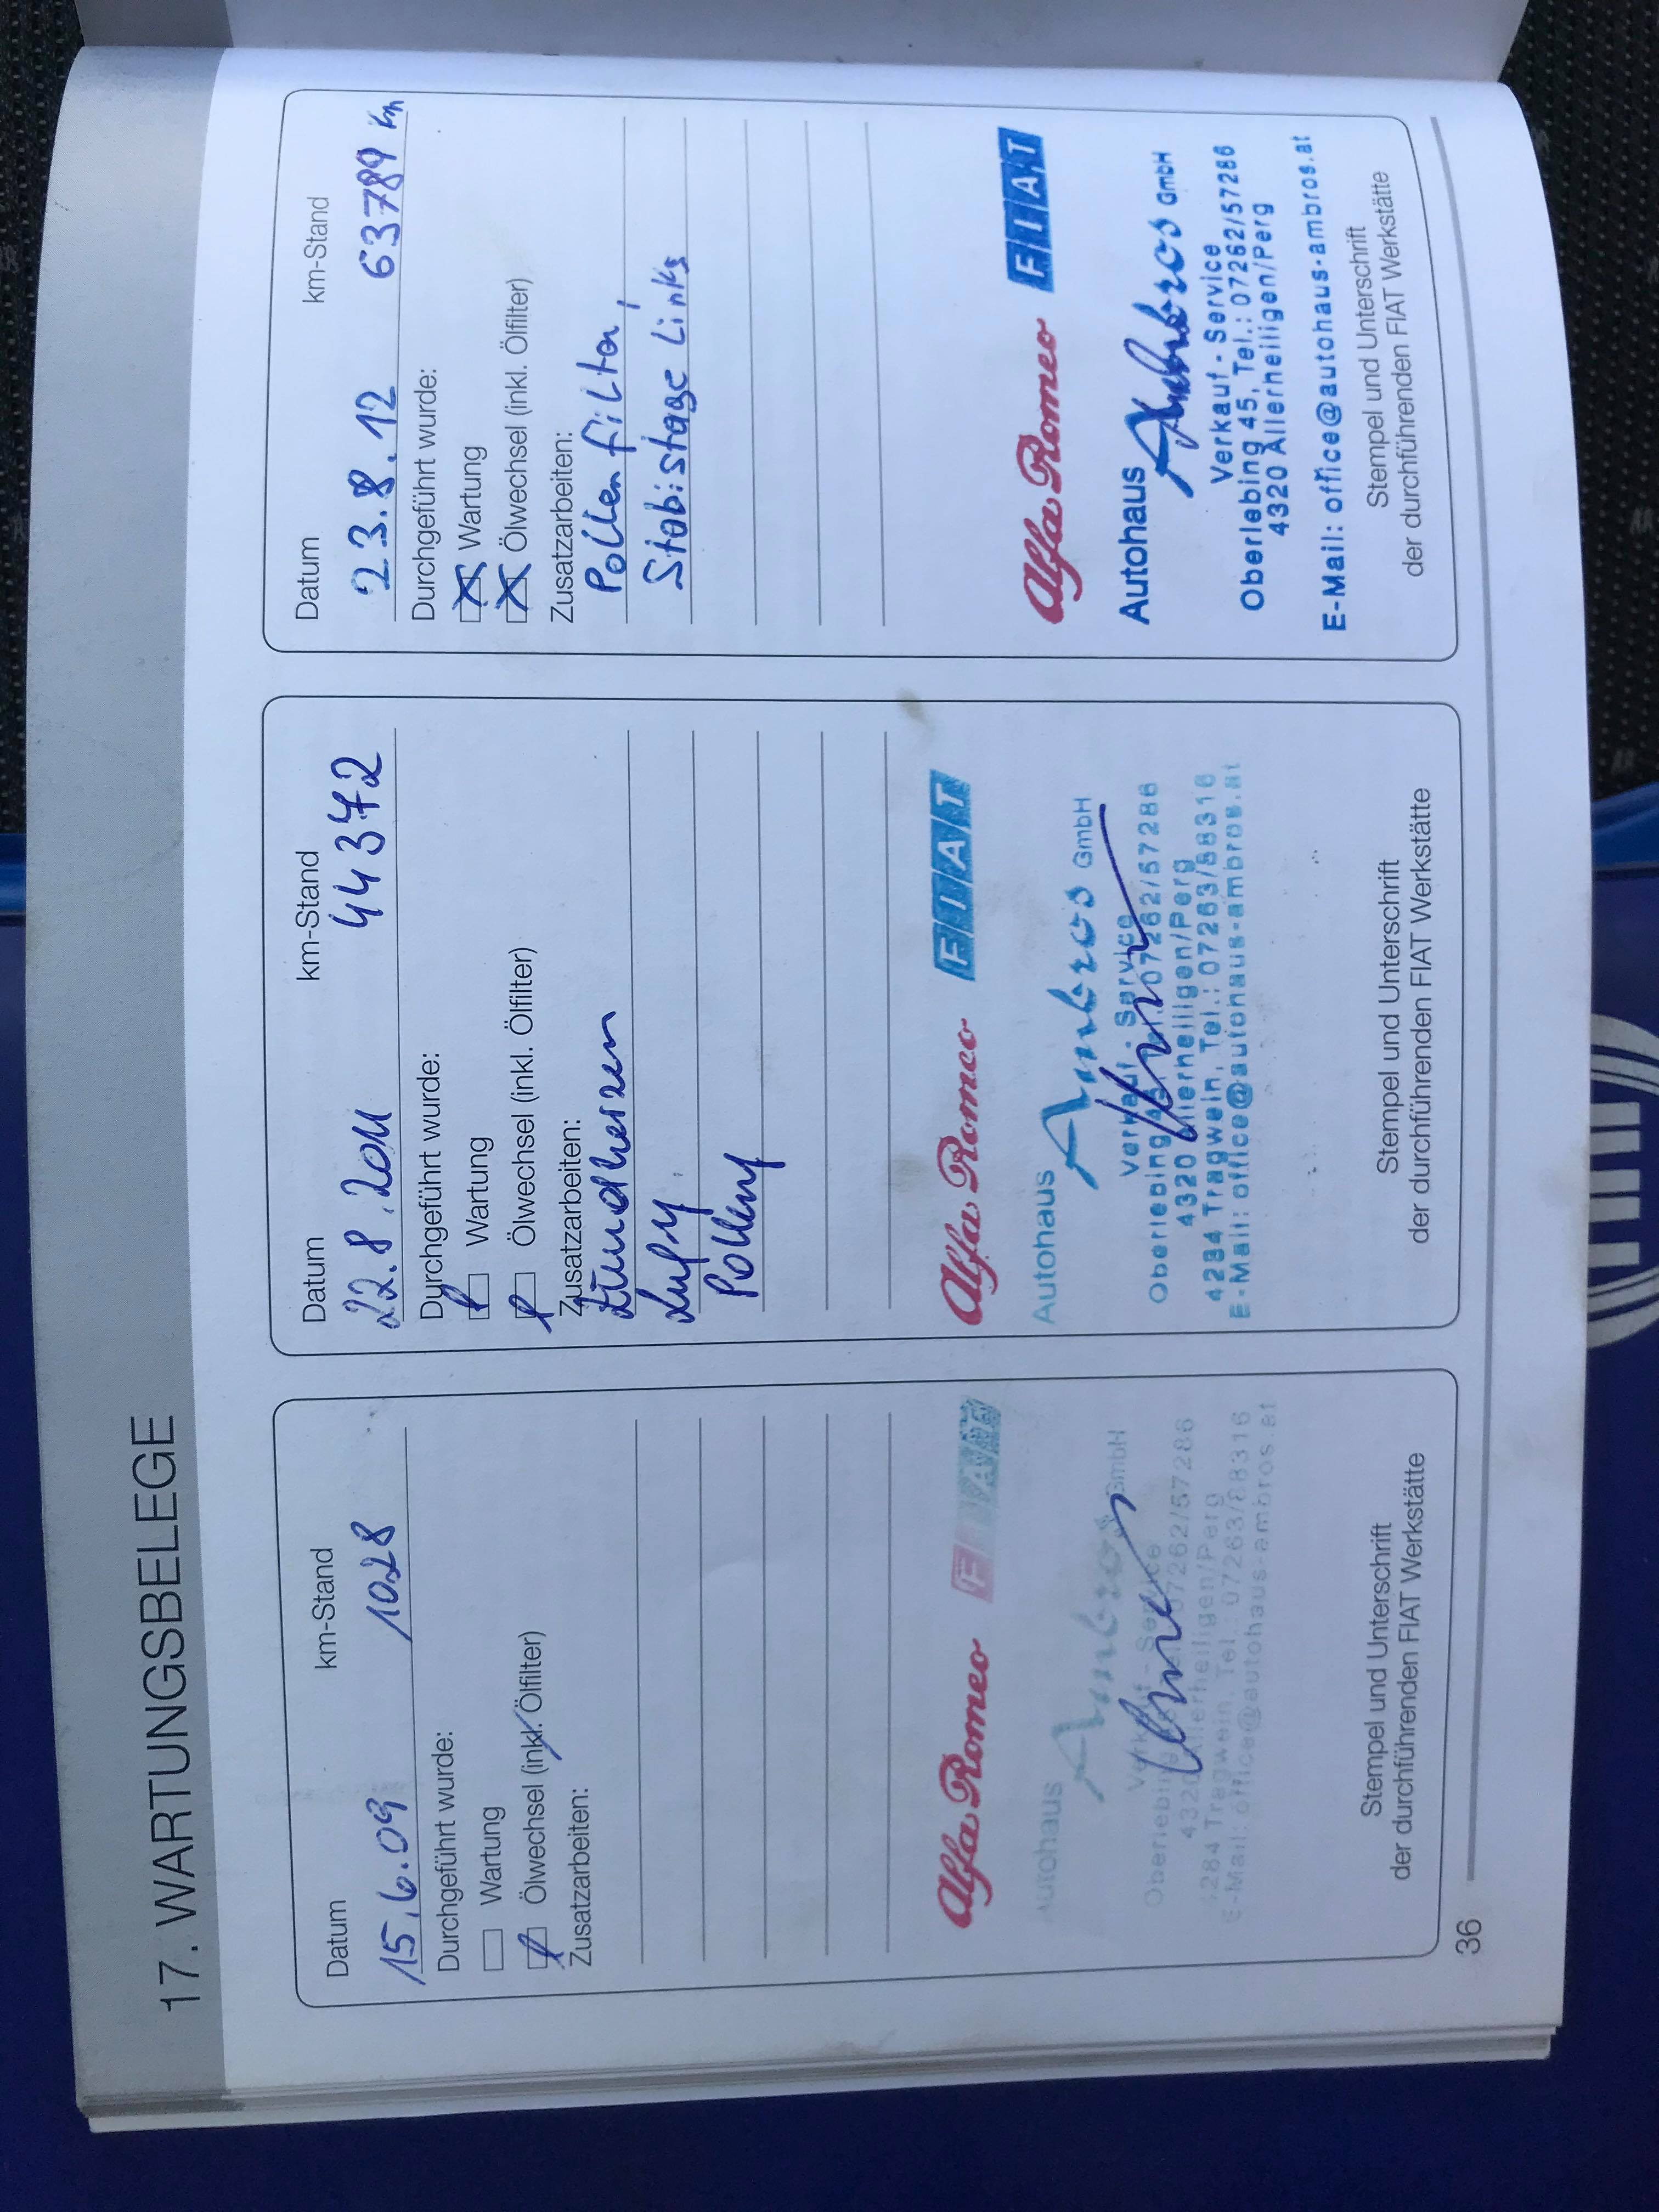 17. WARTUNGSBELEGE
Datum km-Stand
15.6.09 1028
Durchgeführt wurde:
Wartung
Ölwechsel (inkl. Ölfilter)
Zusatzarbeiten:
Alfa Romeo FIAT
Autohaus Ambros GmbH
Verkauf - Service
Oberlebing 07262/57286
4320 Allerheiligen/Perg
4284 Tragwein, Tel.: 07263/88316
E-Mail: office@autohaus-ambros.at
Stempel und Unterschrift
der durchführenden FIAT Werkstätte
Datum km-Stand
22.8.2011 44372
Durchgeführt wurde:
Wartung
Ölwechsel (inkl. Ölfilter)
Zusatzarbeiten:
Zündkerzen
Luft
Pollen
Alfa Romeo FIAT
Autohaus Ambros GmbH
Verkauf - Service
Oberlebing 07262/57286
4320 Allerheiligen/Perg
4284 Tragwein, Tel.: 07263/88316
E-Mail: office@autohaus-ambros.at
Stempel und Unterschrift
der durchführenden FIAT Werkstätte
Datum km-Stand
23.8.12 63789 km
Durchgeführt wurde:
Wartung
Ölwechsel (inkl. Ölfilter)
Zusatzarbeiten:
Pollenfilter,
Stabistage Links
Alfa Romeo FIAT
Autohaus Ambros GmbH
Verkauf - Service
Oberlebing 45, Tel.: 07262/57286
4320 Allerheiligen/Perg
E-Mail: office@autohaus-ambros.at
Stempel und Unterschrift
der durchführenden FIAT Werkstätte
36